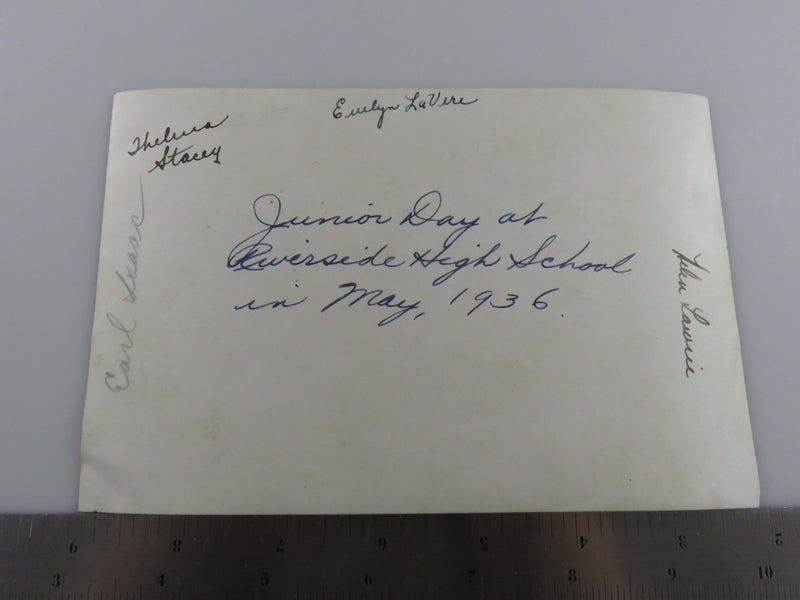 Evelyn LaVere
Thelma
Stacey
Junior Day at
Riverside High School
in May, 1936.
Earl Isaac
Helen Lawrie
9 8 7 6 5 4 3 2
3 4 5 6 7 8 9 10